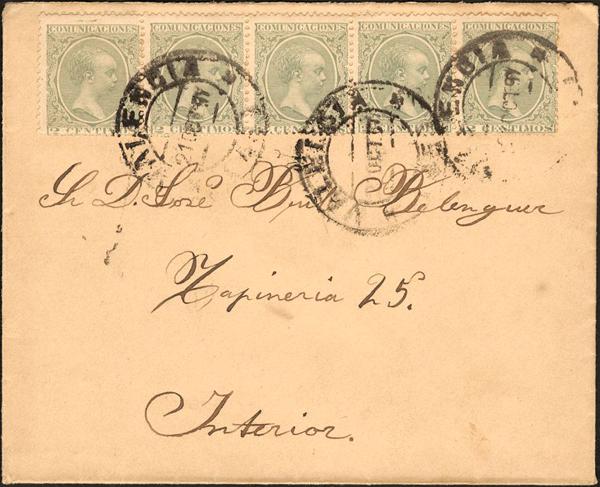 COMUNICACIONES COMUNICACIONES COMUNICACIONES COMUNICACIONES COMUNICACIONES
2 CENTIMOS 2 CENTIMOS CENTIMOS CENTIMOS CENTIMOS
VALENCIA VALENCIA VALENCIA
Sr. D. José Bru Belenguer
Tapineria 25.
Interior.